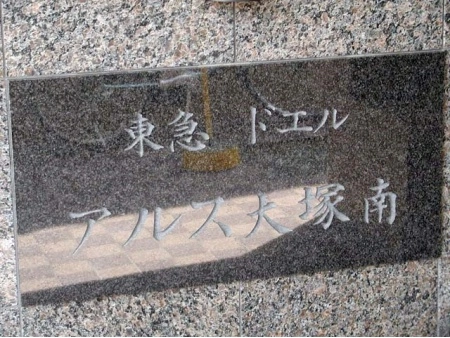 東急 ドエル
アルス大塚南